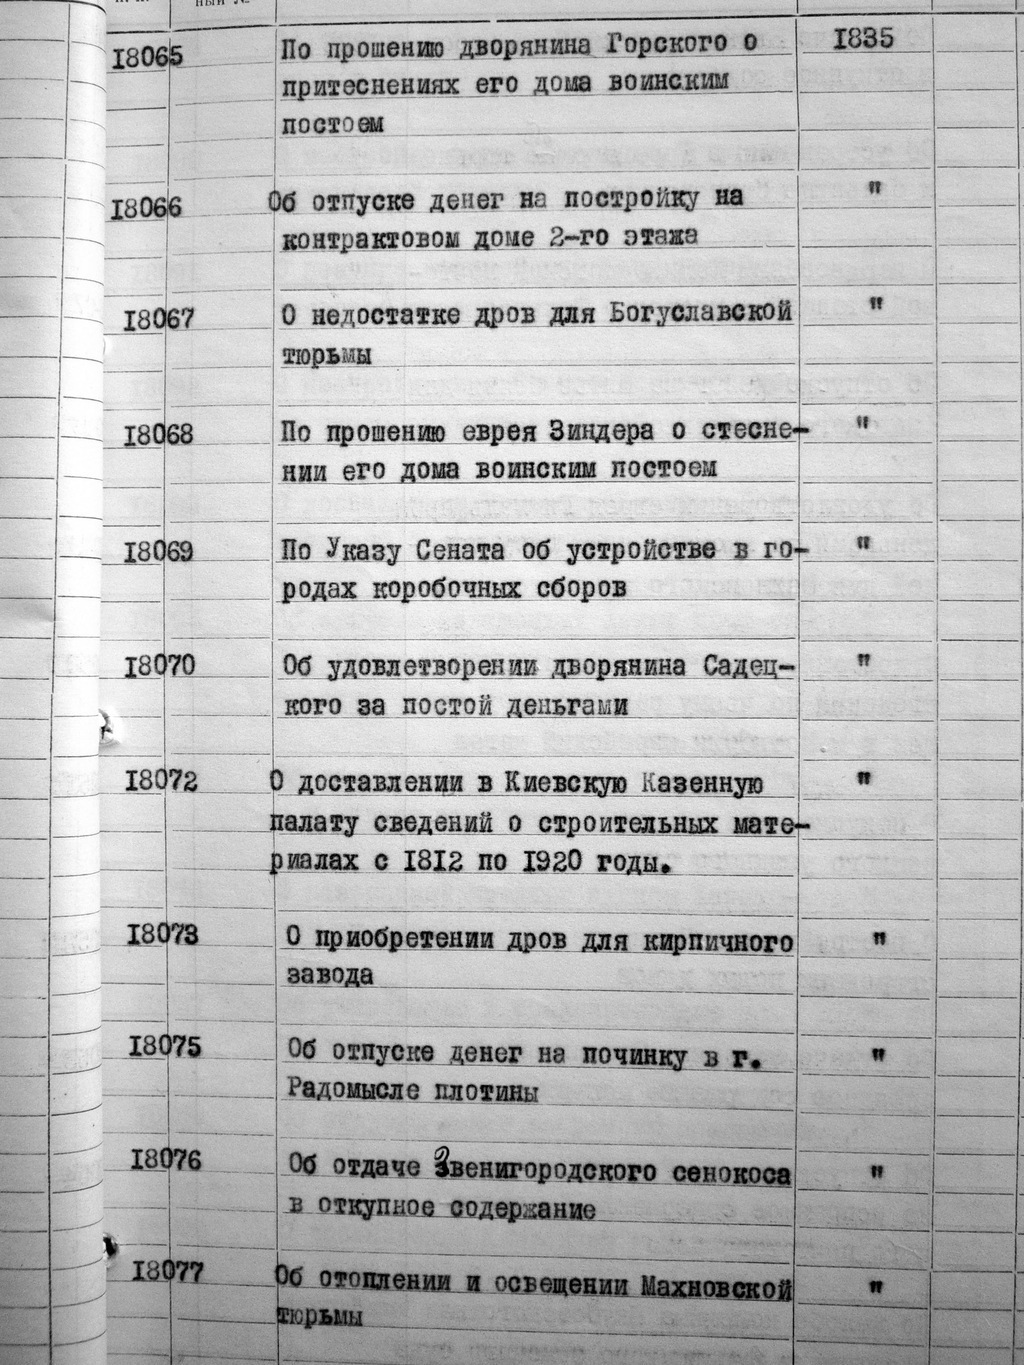 18065 По прошению дворянина Горского о 1835
притеснениях его дома воинским
постоем
18066 Об отпуске денег на постройку на "
контрактовом доме 2-го этажа
18067 О недостатке дров для Богуславской "
тюрьмы
18068 По прошению еврея Зиндера о стесне- "
нии его дома воинским постоем
18069 По Указу Сената об устройстве в го- "
родах коробочных сборов
18070 Об удовлетворении дворянина Садец- "
кого за постой деньгами
18072 О доставлении в Киевскую Казенную "
палату сведений о строительных мате-
риалах с 1812 по 1920 годы.
18073 О приобретении дров для кирпичного "
завода
18075 Об отпуске денег на починку в г. "
Радомысле плотины
18076 Об отдаче Звенигородского сенокоса "
в откупное содержание
18077 Об отоплении и освещении Махновской "
тюрьмы